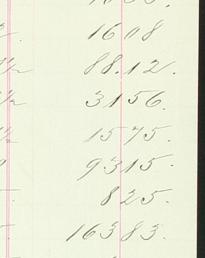 1608
½ 88.12.
½ 3156.
½ 1575.
9315.
825.
16383.